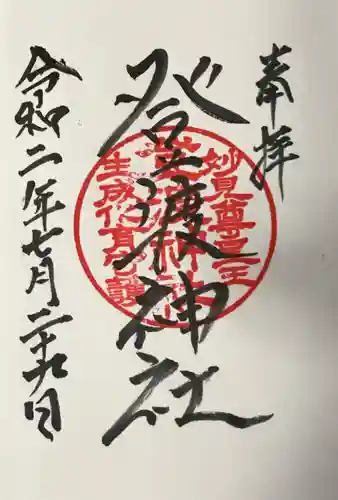 奉拝
登渡神社
妙見尊星王
登渡神社
令和二年七月二十九日